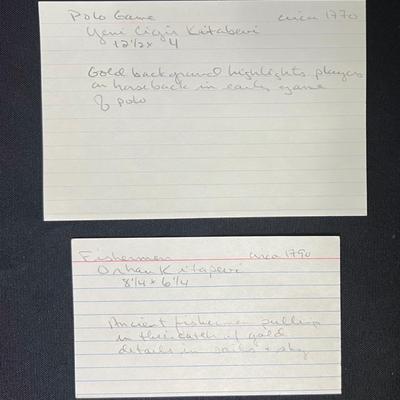 Polo Game circa 1770
Yeni Cigir Kitabevi
12 1/2 x 4
Gold background highlights players
on horseback in early game
of polo
Fishermen circa 1790
Orhan Kitapevi
8 1/4 x 6 1/4
Ancient fishermen pulling
in their catch of gold
details in sails & sky